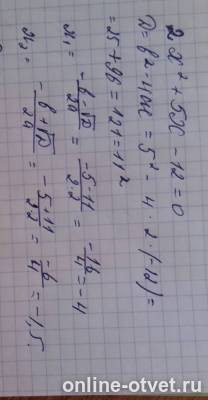 2x² + 5x - 12 = 0
D = b² - 4ac = 5² - 4 · 2 · (-12) =
= 25 + 96 = 121 = 11²
x₁ = (-b - √D)/2a = (-5 - 11)/(2·2) = -16/4 = -4
x₂ = (-b + √D)/2a = (-5·11)/(2·2) = -6/4 = -1,5.
online-otvet.ru